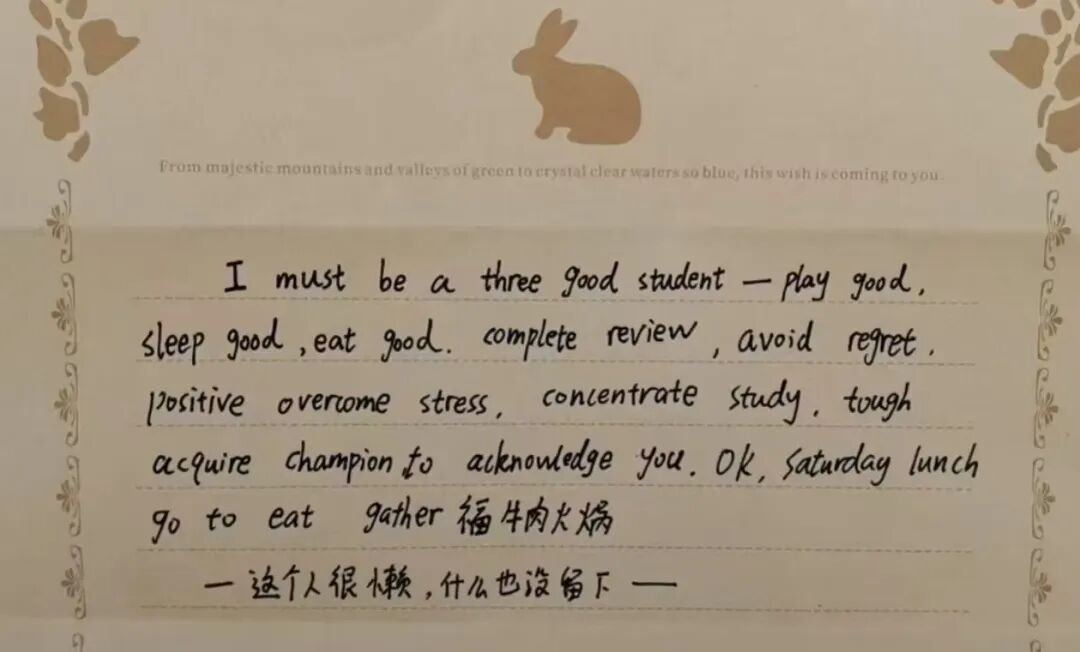 From majestic mountains and valleys of green to crystal clear waters so blue, this wish is coming to you.
I must be a three good student — play good,
sleep good, eat good. complete review, avoid regret.
positive overcome stress, concentrate study, tough
acquire champion, to acknowledge you. Ok, Saturday lunch
go to eat gather 福牛肉火锅
— 这个人很懒,什么也没留下 —